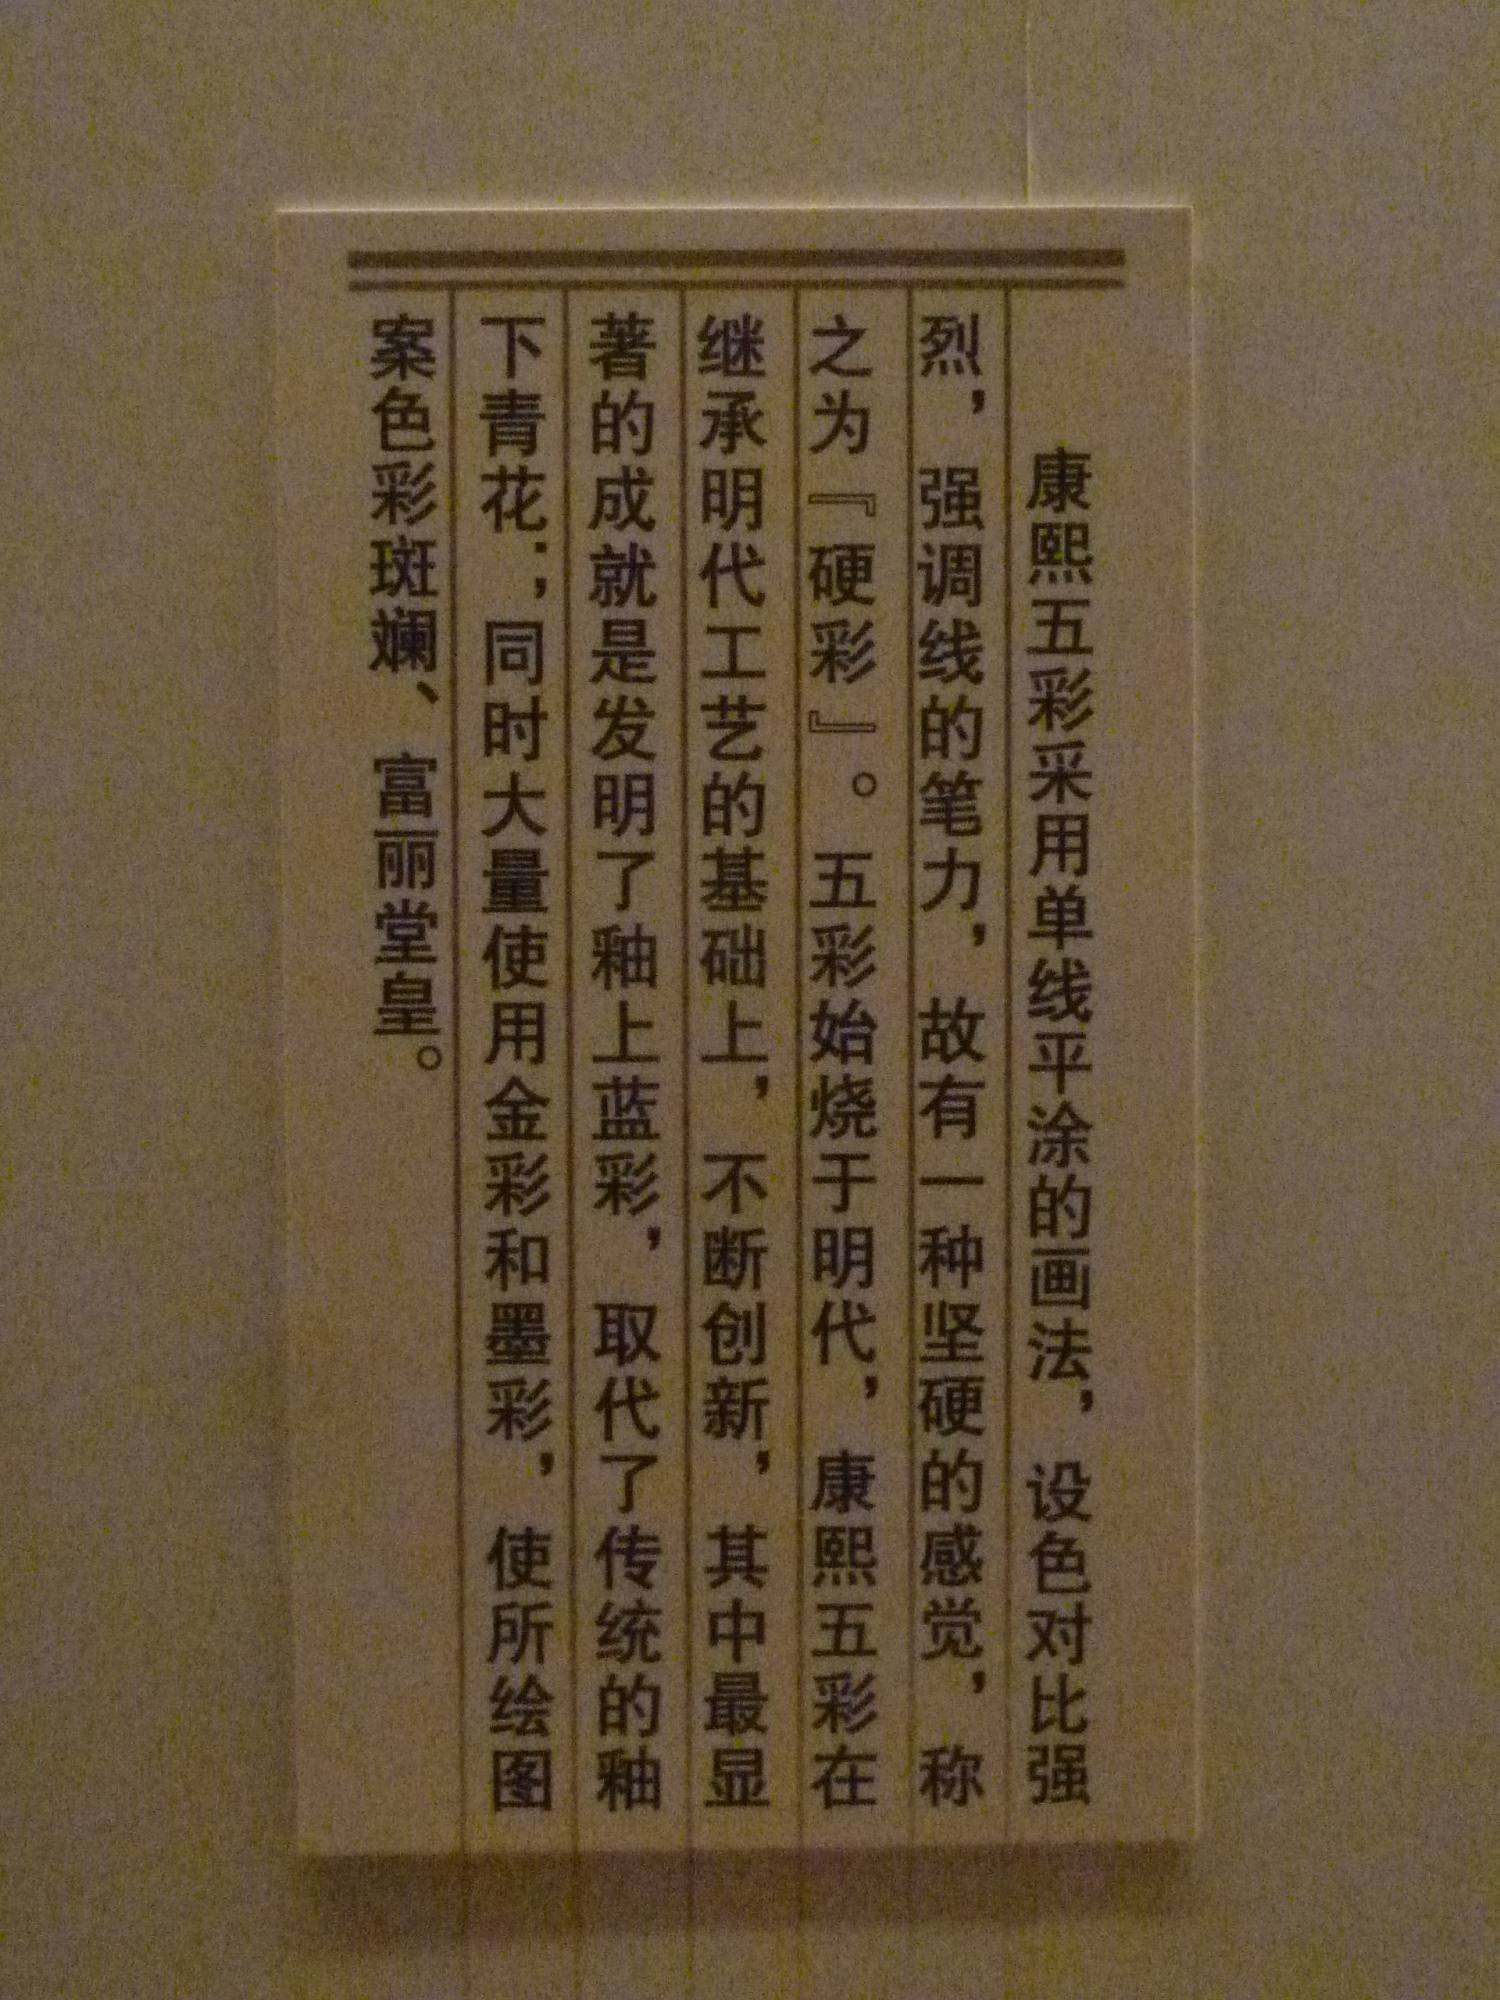 康熙五彩采用单线平涂的画法，设色对比强
烈，强调线的笔力，故有一种坚硬的感觉，称
之为『硬彩』。五彩始烧于明代，康熙五彩在
继承明代工艺的基础上，不断创新，其中最显
著的成就是发明了釉上蓝彩，取代了传统的釉
下青花；同时大量使用金彩和墨彩，使所绘图
案色彩斑斓、富丽堂皇。